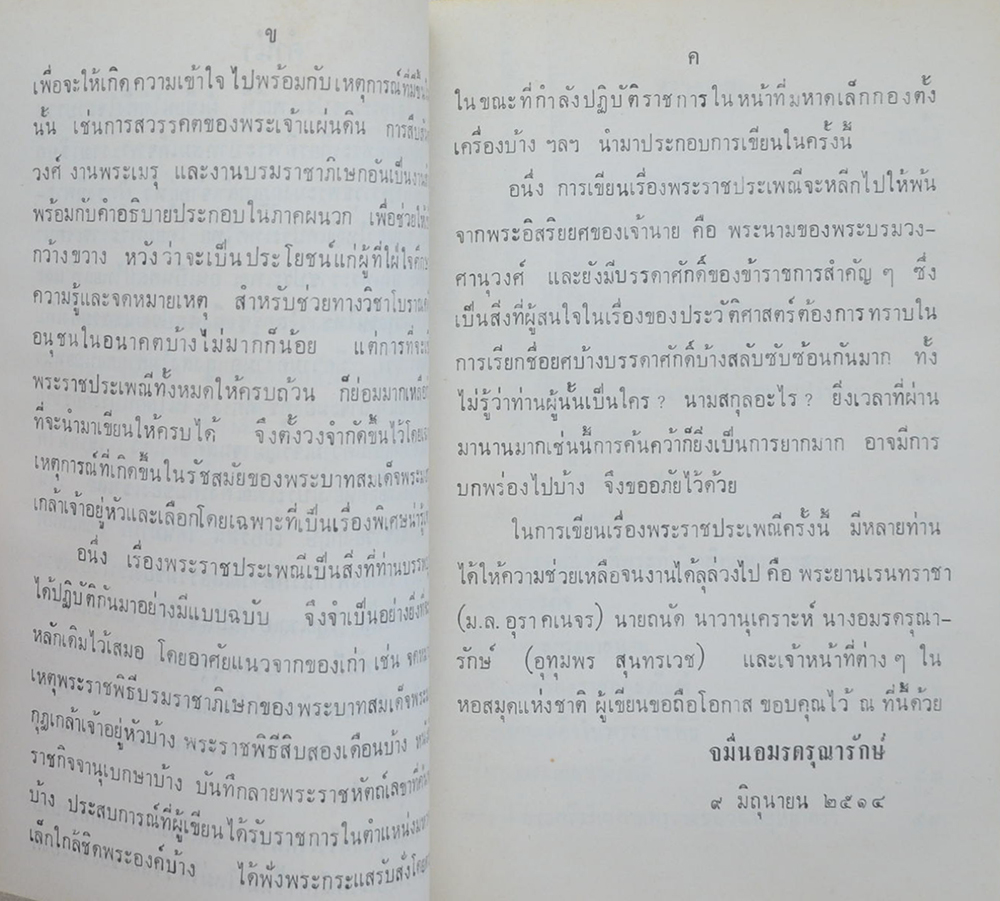 ข
เพื่อจะให้เกิดความเข้าใจ ไปพร้อมกับ เหตุการณ์
นั้น เช่นการสวรรคตของพระเจ้าแผ่นดิน
วงศ์ งานพระเมรุ และงานบรมราชาภิเษกอันเป็น
พร้อมกับคำอธิบายประกอบในภาคผนวก เพื่อช่วย
กว้างขวาง หวังว่าจะเป็นประโยชน์แก่ผู้ที่ใฝ่ใจ
ความรู้และจดหมายเหตุ สำหรับช่วยทางวิชา
อนุชนในอนาคตบ้างไม่มากก็น้อย แต่การที่
พระราชประเพณีทั้งหมดให้ครบถ้วน ก็ย่อมมาก
ที่จะนำมาเขียนให้ครบได้ จึงตั้งวงจำกัดขึ้นไว้
เหตุการณ์ที่เกิดขึ้นในรัชสมัยของพระบาทสมเด็จ
เกล้าเจ้าอยู่หัวและเลือกโดยเฉพาะที่เป็นเรื่องพิเศษ
อนึ่ง เรื่องพระราชประเพณีเป็นสิ่งที่ท่าน
ได้ปฏิบัติกันมาอย่างมีแบบฉบับ จึงจำเป็นอย่างยิ่ง
หลักเดิมไว้เสมอ โดยอาศัยแนวจากของเก่า เช่น
เหตุพระราชพิธีบรมราชาภิเษกของพระบาทสมเด็จ
กุฎเกล้าเจ้าอยู่หัวบ้าง พระราชพิธีสิบสองเดือนบ้าง
ราชกิจจานุเบกษาบ้าง บันทึกลายพระราชหัตถ์เลขา
บ้าง ประสบการณ์ที่ผู้เขียนได้รับราชการในตำแหน่ง
เล็กใกล้ชิดพระองค์บ้าง ได้ฟังพระกระแสรับสั่ง
ค
ในขณะที่กำลังปฏิบัติราชการในหน้าที่มหาดเล็กกองตั้ง
เครื่องบ้าง ฯลฯ นำมาประกอบการเขียนในครั้งนี้
อนึ่ง การเขียนเรื่องพระราชประเพณีจะหลีกไปให้พ้น
จากพระอิสริยยศของเจ้านาย คือ พระนามของพระบรมวง-
ศานุวงศ์ และยังมีบรรดาศักดิ์ของข้าราชการสำคัญ ๆ ซึ่ง
เป็นสิ่งที่ผู้สนใจในเรื่องของประวัติศาสตร์ต้องการทราบใน
การเรียกชื่อยศบ้างบรรดาศักดิ์บ้างสลับซับซ้อนกันมาก ทั้ง
ไม่รู้ว่าท่านผู้นั้นเป็นใคร ? นามสกุลอะไร ? ยิ่งเวลาที่ผ่าน
มานานมากเช่นนี้การค้นคว้าก็ยิ่งเป็นการยากมาก อาจมีการ
บกพร่องไปบ้าง จึงขออภัยไว้ด้วย
ในการเขียนเรื่องพระราชประเพณีครั้งนี้ มีหลายท่าน
ได้ให้ความช่วยเหลือจนงานได้ลุล่วงไป คือ พระยานเรนทราชา
(ม.ล. อุรา คเนจร) นายถนัด นาวานุเคราะห์ นางอมรดรุณา-
รักษ์ (อุทุมพร สุนทรเวช) และเจ้าหน้าที่ต่าง ๆ ใน
หอสมุดแห่งชาติ ผู้เขียนขอถือโอกาส ขอบคุณไว้ ณ ที่นี้ด้วย
จมื่นอมรดรุณารักษ์
๙ มิถุนายน ๒๕๑๔